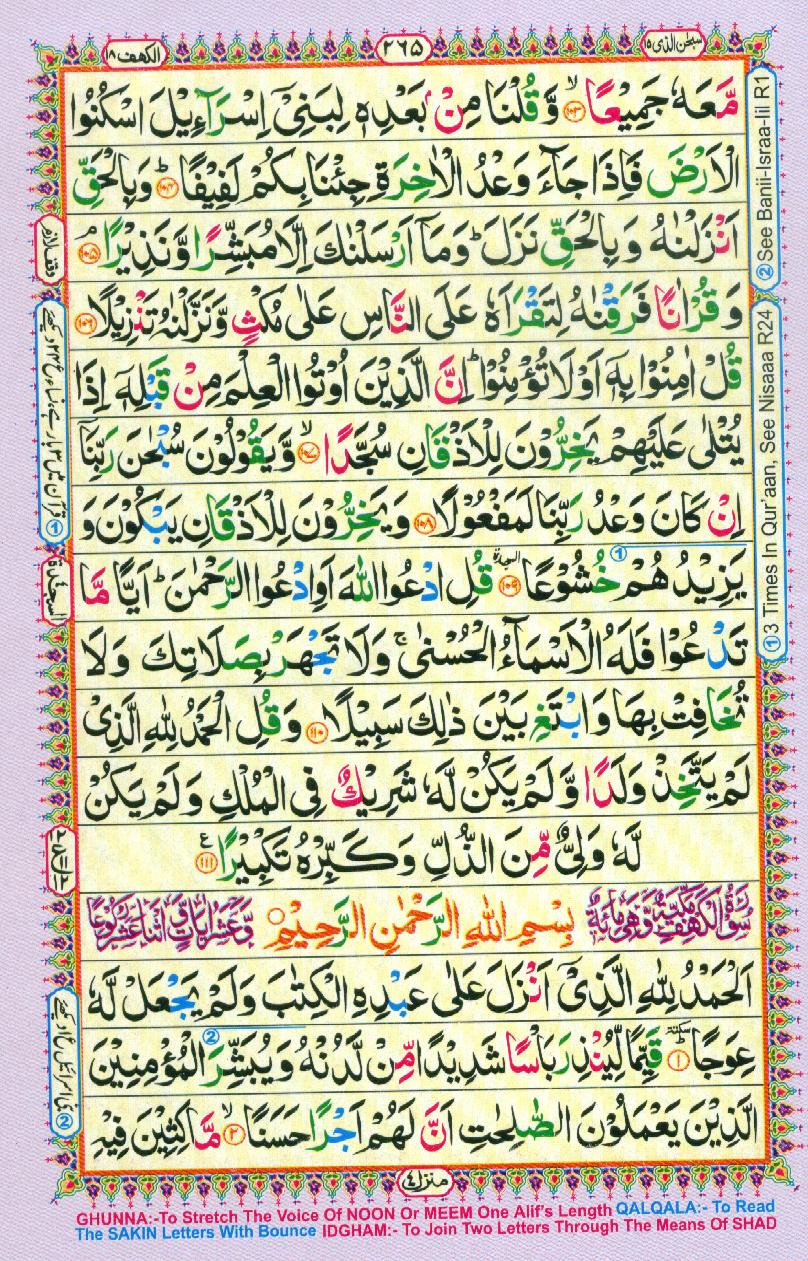 سبحن الذی ۱۵
۲۶۵
الکهف ۱۸
مَّعَهٗ جَمِیْعًا ۙ﴿۱۰۳﴾ وَّ قُلْنَا مِنْۢ بَعْدِهٖ لِبَنِیْۤ اِسْرَآءِیْلَ اسْكُنُوا
الْاَرْضَ فَاِذَا جَآءَ وَعْدُ الْاٰخِرَةِ جِئْنَا بِكُمْ لَفِیْفًا ؕ﴿۱۰۴﴾ وَ بِالْحَقِّ
اَنْزَلْنٰهُ وَ بِالْحَقِّ نَزَلَ ؕ وَ مَاۤ اَرْسَلْنٰكَ اِلَّا مُبَشِّرًا وَّ نَذِیْرًا ۘ﴿۱۰۵﴾
وَ قُرْاٰنًا فَرَقْنٰهُ لِتَقْرَاَهٗ عَلَی النَّاسِ عَلٰی مُكْثٍ وَّ نَزَّلْنٰهُ تَنْزِیْلًا ﴿۱۰۶﴾
قُلْ اٰمِنُوْا بِهٖۤ اَوْ لَا تُؤْمِنُوْا ؕ اِنَّ الَّذِیْنَ اُوْتُوا الْعِلْمَ مِنْ قَبْلِهٖۤ اِذَا
یُتْلٰی عَلَیْهِمْ یَخِرُّوْنَ لِلْاَذْقَانِ سُجَّدًا ۙ﴿۱۰۷﴾ وَّ یَقُوْلُوْنَ سُبْحٰنَ رَبِّنَاۤ
اِنْ كَانَ وَعْدُ رَبِّنَا لَمَفْعُوْلًا ﴿۱۰۸﴾ وَ یَخِرُّوْنَ لِلْاَذْقَانِ یَبْكُوْنَ وَ
یَزِیْدُهُمْ خُشُوْعًا ﴿۱۰۹﴾ السجدة ① قُلِ ادْعُوا اللّٰهَ اَوِ ادْعُوا الرَّحْمٰنَ ؕ اَیًّا مَّا
تَدْعُوْا فَلَهُ الْاَسْمَآءُ الْحُسْنٰی ۚ وَ لَا تَجْهَرْ بِصَلَاتِكَ وَ لَا
تُخَافِتْ بِهَا وَ ابْتَغِ بَیْنَ ذٰلِكَ سَبِیْلًا ﴿۱۱۰﴾ وَ قُلِ الْحَمْدُ لِلّٰهِ الَّذِیْ
لَمْ یَتَّخِذْ وَلَدًا وَّ لَمْ یَكُنْ لَّهٗ شَرِیْكٌ فِی الْمُلْكِ وَ لَمْ یَكُنْ
لَّهٗ وَلِیٌّ مِّنَ الذُّلِّ وَ كَبِّرْهُ تَكْبِیْرًا ﴿۱۱۱﴾ ع
سُوْرَةُ الْكَهْفِ مَكِّیَّةٌ وَّهِیَ مِائَةٌ بِسْمِ اللّٰهِ الرَّحْمٰنِ الرَّحِیْمِ وَّعَشْرُ اٰیَاتٍ وَّاثْنَا عَشَرَ رُكُوْعًا
اَلْحَمْدُ لِلّٰهِ الَّذِیْۤ اَنْزَلَ عَلٰی عَبْدِهِ الْكِتٰبَ وَ لَمْ یَجْعَلْ لَّهٗ
عِوَجًا ؕ سكتة ﴿۱﴾ قَیِّمًا لِّیُنْذِرَ بَاْسًا شَدِیْدًا مِّنْ لَّدُنْهُ وَ یُبَشِّرَ ② الْمُؤْمِنِیْنَ
الَّذِیْنَ یَعْمَلُوْنَ الصّٰلِحٰتِ اَنَّ لَهُمْ اَجْرًا حَسَنًا ۙ﴿۲﴾ مَّاكِثِیْنَ فِیْهِ
منزل ۴
② See Banii-Israa-Iil R1
① 3 Times In Qur'aan, See Nisaaa R24
وقف لازم
السجدة
GHUNNA:-To Stretch The Voice Of NOON Or MEEM One Alif's Length QALQALA:- To Read
The SAKIN Letters With Bounce IDGHAM:- To Join Two Letters Through The Means Of SHAD